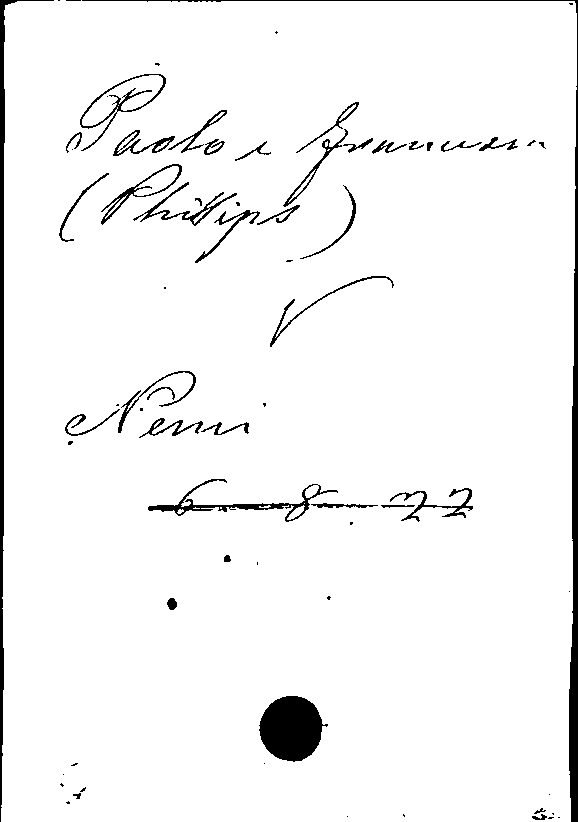 Paolo e Francesca
(Phillips)
Nemi
6 8 22